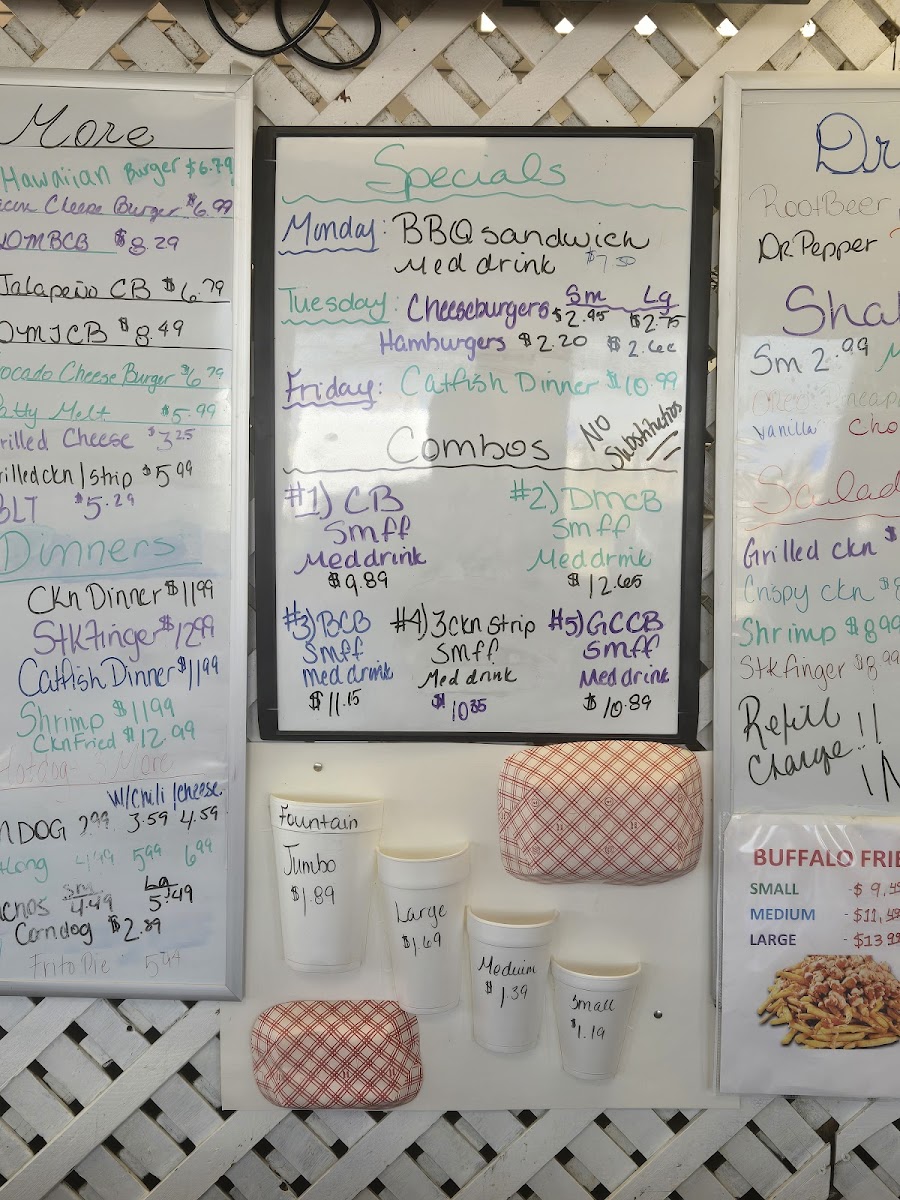 More
Hawaiian Burger $6.79
Cheese Burger $6.99
$8.29
Jalapeño CB $6.79
$8.49
Cheese Burger $6.79
Patty Melt $5.99
rilled Cheese $3.25
rilled ckn/strip $5.99
BLT $5.29
Dinners
Ckn Dinner $11.99
Stkfinger $12.99
Catfish Dinner $11.99
Shrimp $11.99
Ckn Fried $12.99
More
w/Chili /cheese
DOG 2.99 3.59 4.59
long 5.99 6.99
Sm Lg
4.49 5.49
Corndog $2.89
Frito Pie
Specials
Monday: BBQ sandwich
Med drink $7.50
Tuesday: Cheeseburgers Sm $2.95 Lg
Hamburgers $2.20
Friday: Catfish Dinner $10.99
Combos
No Substitutions
#1) CB
Sm ff
Med drink
$9.89
#2) DMCB
Sm ff
Med drink
$12.65
#3) BCB
Sm ff
med drink
$11.15
#4) 3 ckn strip
Sm ff
Med drink
$10.35
#5) GCCB
Sm ff
Med drink
$10.89
Fountain
Jumbo
$1.89
Large
$1.69
Meduim
$1.39
Small
$1.19
Dr
RootBeer
Dr. Pepper
Sha
Sm 2.99
Vanilla Cho
Salad
Grilled ckn $
Crispy ckn $8
Shrimp $8.99
Stkfinger $8.99
Refill
Charge!!
BUFFALO FRIE
SMALL - $9.49
MEDIUM - $11.49
LARGE - $13.99